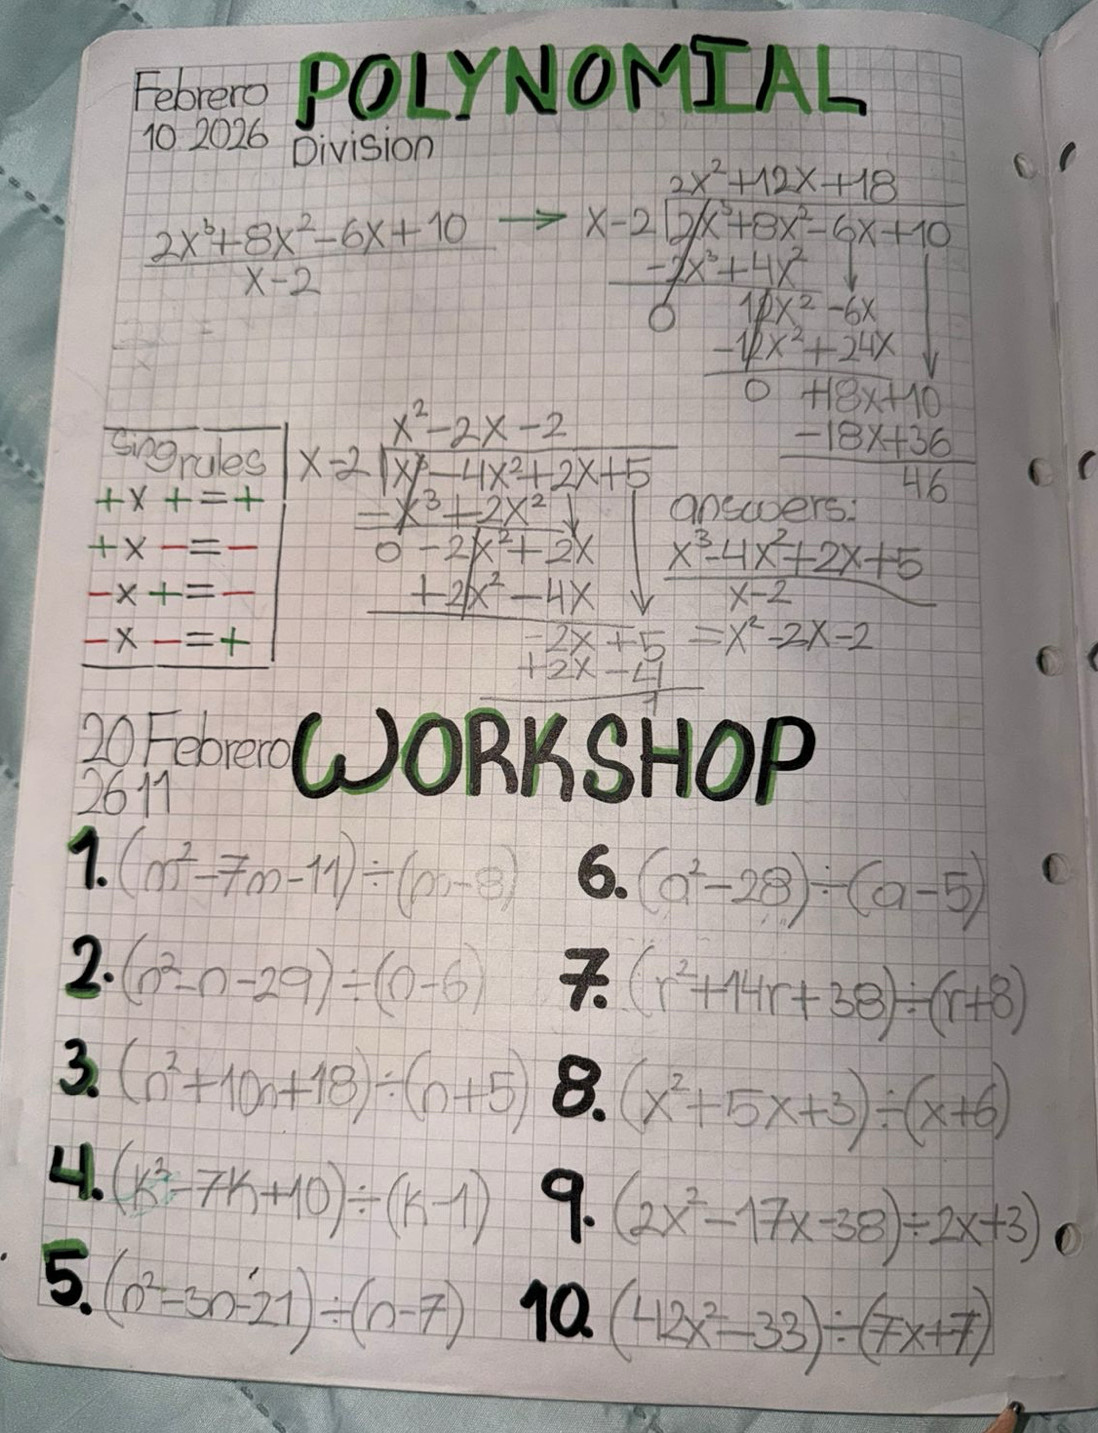 POLYNOMIAL
Febrero
10 2026
Division
2x³+8x²-6x+10
x-2
→
2x²+12x+18
x-2 2x³+8x²-6x+10
-2x³+4x²
0 12x²-6x
-12x²+24x
0 +18x+10
-18x+36
46
sing rules
+x+=+
+x-=-
-x+=-
-x-=+
x²-2x-2
x-2 x³-4x²+2x+5
-x³+2x²
0-2x²+2x
+2x²-4x
-2x+5
+2x-4
1
answers:
x³-4x²+2x+5
x-2
=x²-2x-2
20 Febrero
2611
WORKSHOP
1. (m²-7m-11)÷(m-8)
2. (n²-n-29)÷(n-6)
3. (n²+10n+18)÷(n+5)
4. (k²-7k+10)÷(k-1)
5. (n²-3n-21)÷(n-7)
6. (a²-28)÷(a-5)
7. (r²+14r+38)÷(r+8)
8. (x²+5x+3)÷(x+6)
9. (2x²-17x-38)÷2x+3)
10. (42x²-33)÷(7x+7)